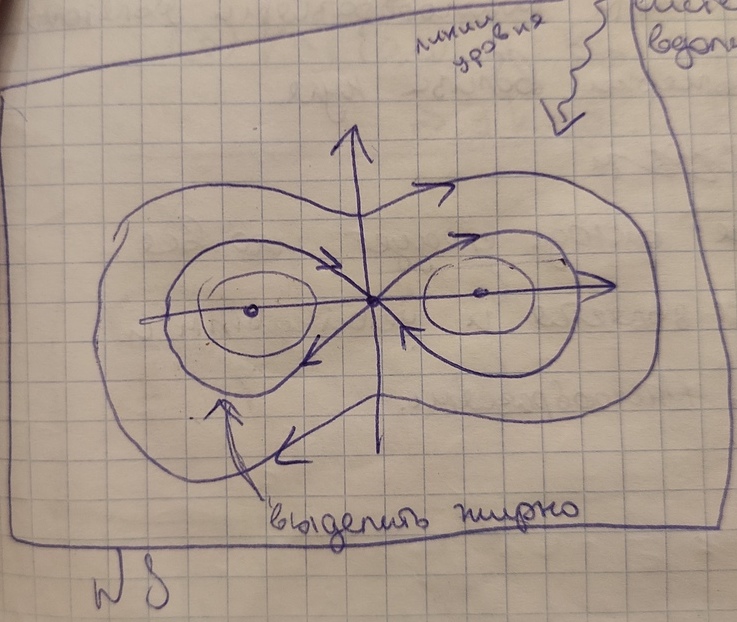 линии
уровня
выделить жирно
N 8